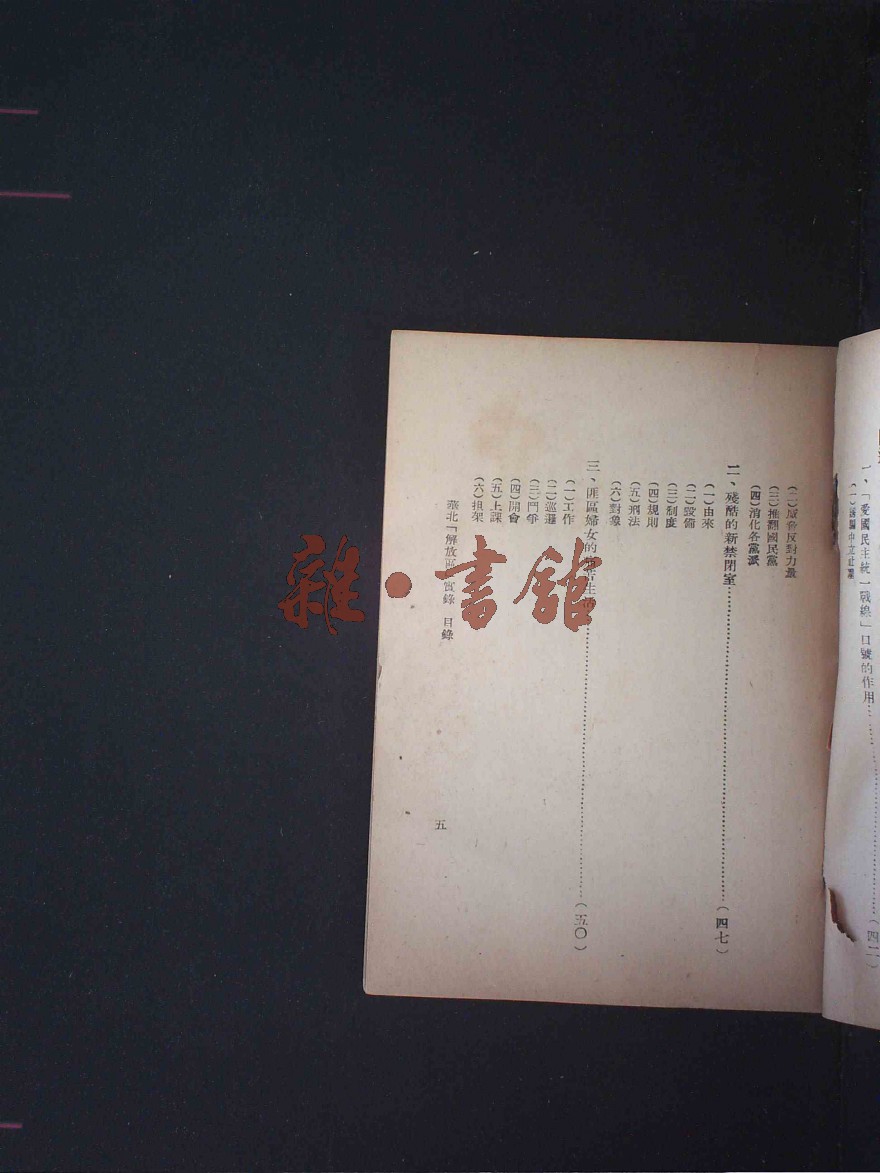 一、「愛國民主統一戰線」口號的作用……(四二)
(二)減脅反對力量
(三)推翻國民黨
(四)消化各黨派
二、殘酷的新禁閉室……(四七)
(一)由來
(二)設備
(三)制度
(四)規則
(五)刑法
(六)對象
三、匪區婦女的 生活……(五〇)
(一)工作
(二)巡邏
(三)鬥爭
(四)開會
(五)上課
(六)担架
華北「解放區」實錄 目錄
五
雜·書館